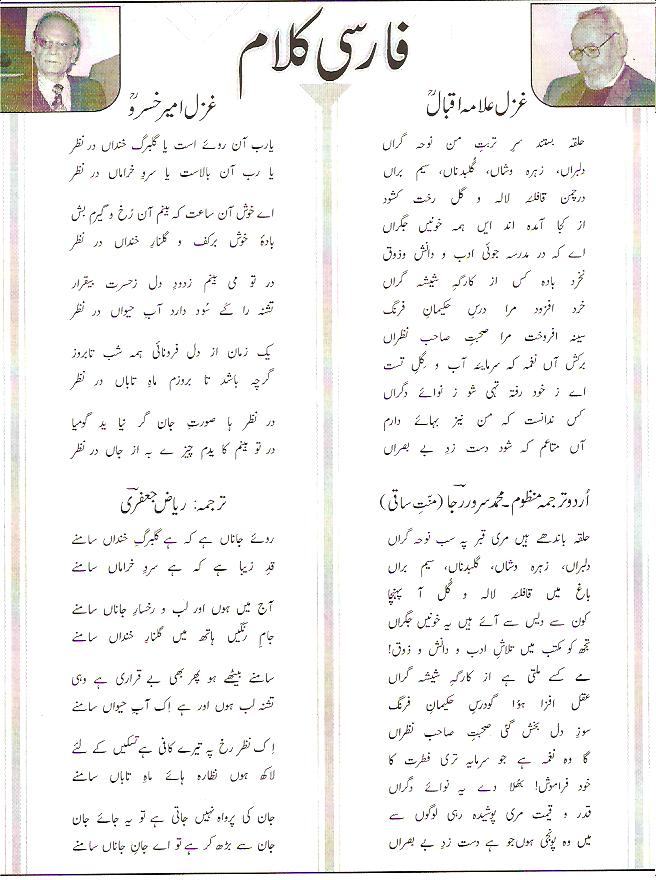 فارسی کلام
غزل علامہ اقبالؒ
حلقہ بستند سرِ تربتِ من نوحہ گراں
دلبراں، زہرہ وشاں، گلبدناں، سیم براں
در چمن قافلۂ لالہ و گل رخت کشود
از کجا آمدہ اند ایں ہمہ خونیں جگراں
اے کہ در مدرسہ جوئی ادب و دانش وذوق
نخرد بادہ کس از کارگہِ شیشہ گراں
خرد افزود مرا درسِ حکیمانِ فرنگ
سینہ افروخت مرا صحبتِ صاحب نظراں
برکش آں نغمہ کہ سرمایۂ آب و گِلِ تست
اے ز خود رفتہ تہی شو ز نوائے دگراں
کس ندانست کہ من نیز بہائے دارم
آں متاعم کہ شود دست زدِ بے بصراں
اُردو ترجمہ منظوم۔ محمد سرور رجاؔ (منّتِ ساقی)
حلقہ باندھے ہیں مری قبر پہ سب نوحہ گراں
دلبراں، زہرہ وشاں، گلبدناں، سیم براں
باغ میں قافلۂ لالہ و گُل آ پہنچا
کون سے دیس سے آئے ہیں یہ خونیں جگراں
تجھ کو مکتب میں تلاشِ ادب و دانش و ذوق!
مے کسے ملتی ہے از کارگہِ شیشہ گراں
عقل افزا ہؤا گو درسِ حکیمانِ فرنگ
سوزِ دل بخش گئی صحبتِ صاحب نظراں
گا وہ نغمہ ہے جو سرمایہ تری فطرت کا
خود فراموش! بھلا دے یہ نوائے دگراں
قدر و قیمت مری پوشیدہ رہی لوگوں سے
میں وہ پونجی ہوں جو ہے دست زدِ بے بصراں
غزل امیر خسروؒ
یارب آن روئے است یا گلبرگِ خنداں در نظر
یا رب آن بالاست یا سروِ خراماں در نظر
اے خوش آن ساعت کہ بینم آن رُخ و گیرم بش
بادۂ خوش برکف و گلنارِ خنداں در نظر
در تو می بینم زدودِ دل زحسرت بیقرار
تشنہ را کَے سُود دارد آب حیواں در نظر
یک زمان از دل فرونائی ہمہ شب تابروز
گرچہ باشد تا بروزم ماہِ تاباں در نظر
در نظر ہا صورتِ جان گر نیا ید گومیا
در تو بینم کا یدم چیز ے بہ از جاں در نظر
ترجمہ: ریاض جعفریؔ
روئے جاناں ہے کہ ہے گلبرگِ خنداں سامنے
قدِ زیبا ہے کہ ہے سروِ خراماں سامنے
آج میں ہوں اور لب و رخسارِ جاناں سامنے
جامِ رنگیں ہاتھ میں گلنارِ خنداں سامنے
سامنے بیٹھے ہو پھر بھی بے قراری ہے وہی
تشنہ لب ہوں اور ہے اِک آبِ حیواں سامنے
اِک نظر رخ پہ تیرے کافی ہے تسکیں کے لئے
لاکھ ہوں نظارہ ہائے ماہِ تاباں سامنے
جان کی پرواہ نہیں جاتی ہے تو یہ جائے جان
جان سے بڑھ کر ہے تو اے جانِ جاناں سامنے